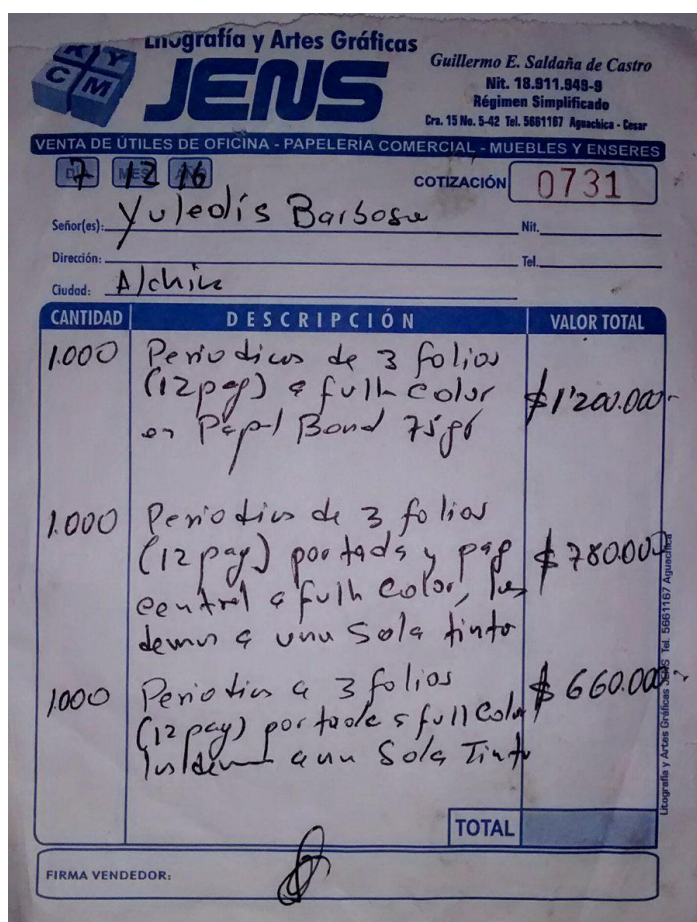 K Y
C M
Litografía y Artes Gráficas
JENS
Guillermo E. Saldaña de Castro
Nit. 18.911.949-9
Régimen Simplificado
Cra. 15 No. 5-42 Tel. 5661167 Aguachica - Cesar
VENTA DE ÚTILES DE OFICINA - PAPELERÍA COMERCIAL - MUEBLES Y ENSERES
7 12 16
COTIZACIÓN 0731
Señor(es): Yuledis Barbosa Nit.
Dirección: Tel.
Ciudad:
CANTIDAD DESCRIPCIÓN VALOR TOTAL
1.000 Periodicos de 3 folios
(12 pag) a full Color $1'200.000-
en Papel Bond 75gr
1.000 Periodicos de 3 folios
(12 pag) portada y pag $780.000
central a full Color, las
demas a una Sola tinta
1000 Periodicos a 3 folios $660.000
(12 pag) portada a full Color
las demas a una Sola Tinta
TOTAL
FIRMA VENDEDOR:
Litografía y Artes Gráficas JENS Tel. 5661167 Aguachica